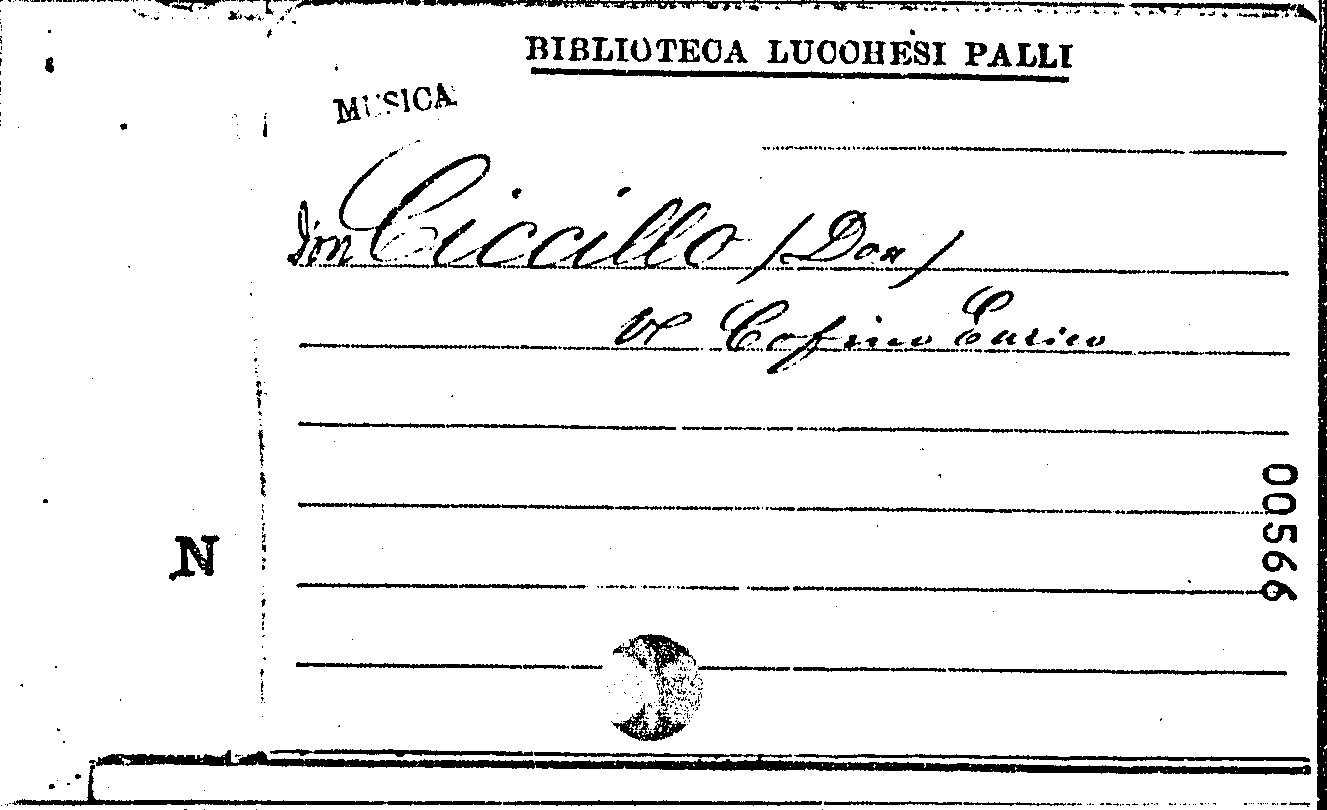 BIBLIOTECA LUCCHESI PALLI
MUSICA
Don Ciccillo (Don)
Ve Cofino Enrico
N
00566